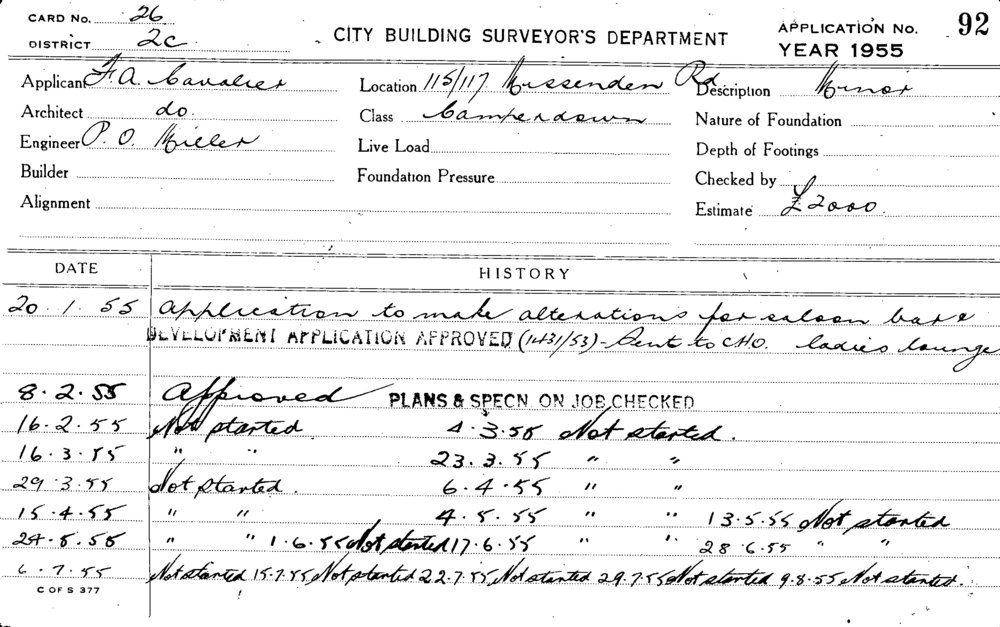 CARD No. 26
DISTRICT 2c
CITY BUILDING SURVEYOR'S DEPARTMENT
APPLICATION No. 92
YEAR 1955
Applicant F. A. Cavalier Location 115/117 Missenden Rd Description Minor
Architect do. Class Camperdown Nature of Foundation
Engineer P. O. Miller Live Load Depth of Footings
Builder Foundation Pressure Checked by
Alignment Estimate £2000.
DATE HISTORY
20.1.55 Application to make alterations for saloon bar &
DEVELOPMENT APPLICATION APPROVED (1431/53) - Sent to C.H.O. ladies lounge
8.2.55 Approved PLANS & SPECN ON JOB CHECKED
16.2.55 Not started. 4.3.55 Not started.
16.3.55 " " 23.3.55 " "
29.3.55 Not started. 6.4.55 " "
15.4.55 " " 4.5.55 " " 13.5.55 Not started
24.5.55 " " 1.6.55 Not started 17.6.55 " " 28.6.55 " "
6.7.55 Not started 15.7.55 Not started 22.7.55 Not started 29.7.55 Not started 9.8.55 Not started.
C OF S 377